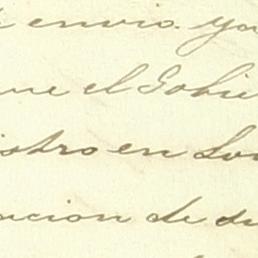 envio. Yo
ue el Gobie
istro en Lon
ucion de su